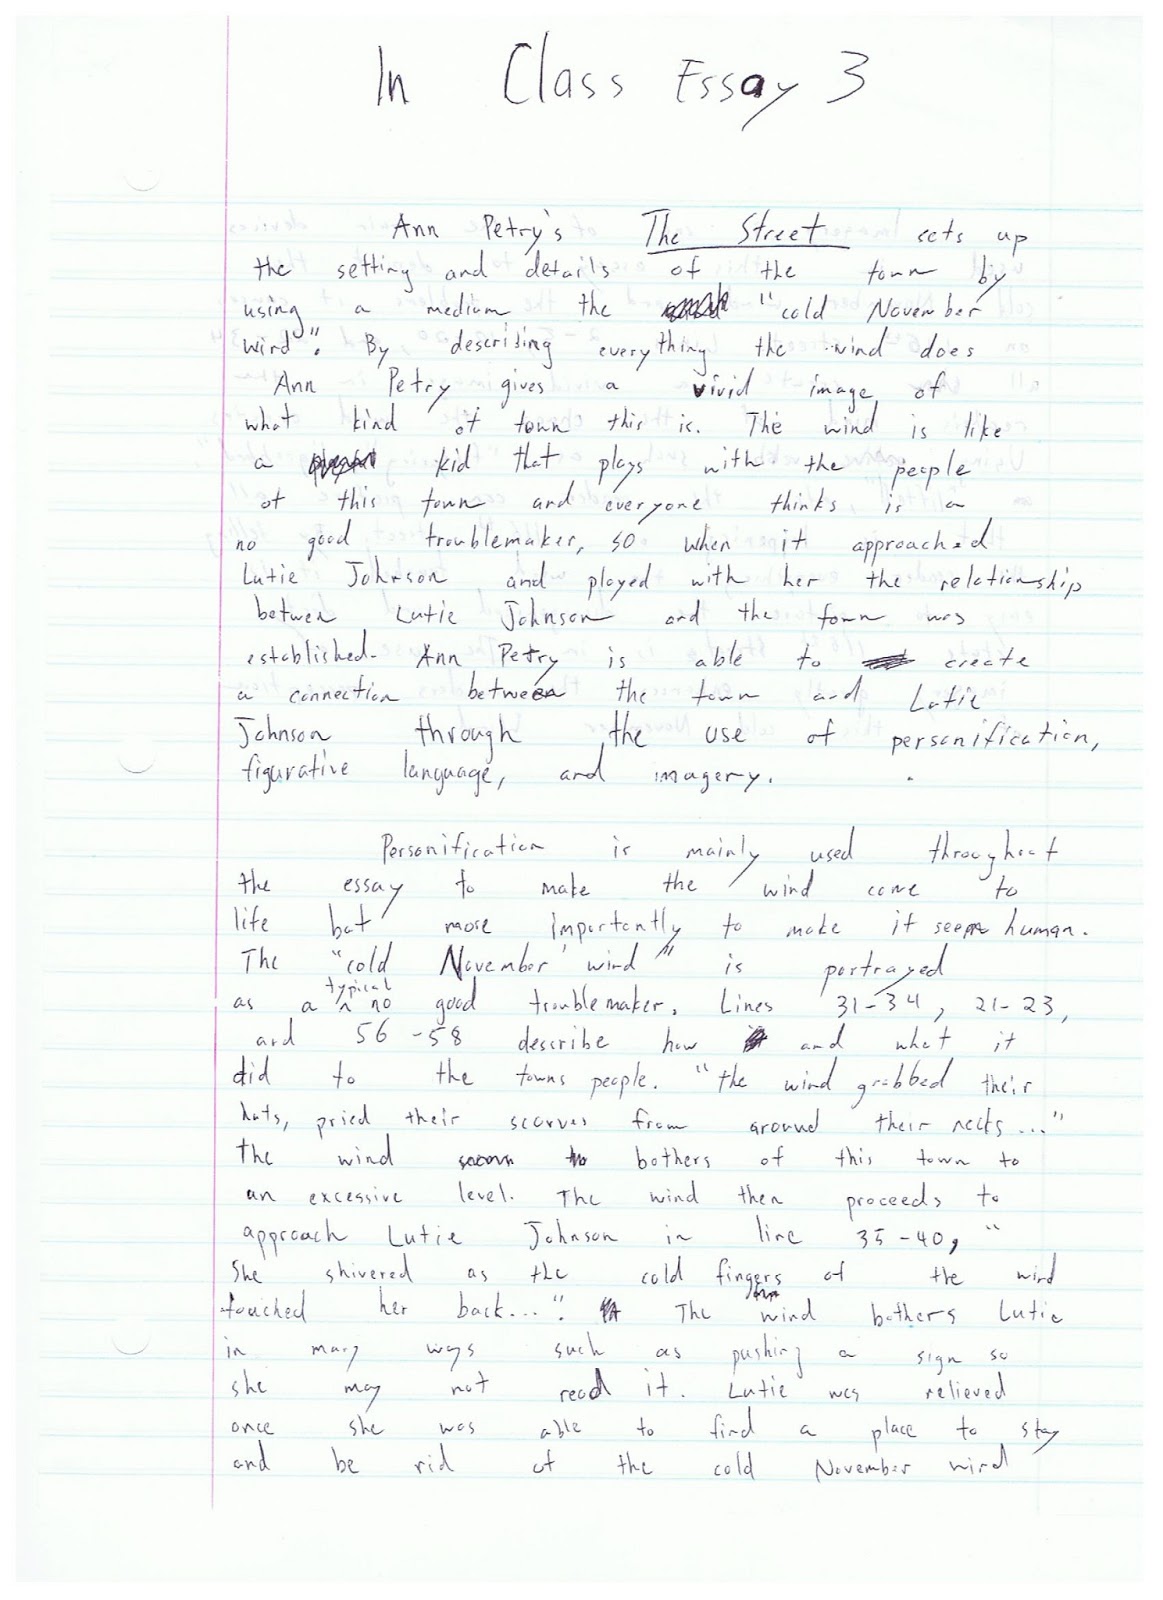 In Class Essay 3
Ann Petry's The Street sets up
the setting and details of the town by
using a medium the "cold November
wind". By describing everything the wind does
Ann Petry gives a vivid image of
what kind of town this is. The wind is like
a kid that plays with the people
of this town and everyone thinks is a
no good troublemaker, so when it approached
Lutie Johnson and played with her the relationship
between Lutie Johnson and the town was
established. Ann Petry is able to create
a connection between the town and Lutie
Johnson through the use of personification,
figurative language, and imagery.
Personification is mainly used throughout
the essay to make the wind come to
life but more importantly to make it seem human.
The "cold November wind" is portrayed
as a typical no good troublemaker. Lines 31-34, 21-23,
and 56-58 describe how and what it
did to the towns people. "the wind grabbed their
hats, pried their scarves from around their necks..."
The wind bothers of this town to
an excessive level. The wind then proceeds to
approach Lutie Johnson in line 35-40, "
She shivered as the cold fingers of the wind
touched her back...". The wind bothers Lutie
in many ways such as pushing a sign so
she may not read it. Lutie was relieved
once she was able to find a place to stay
and be rid of the cold November wind